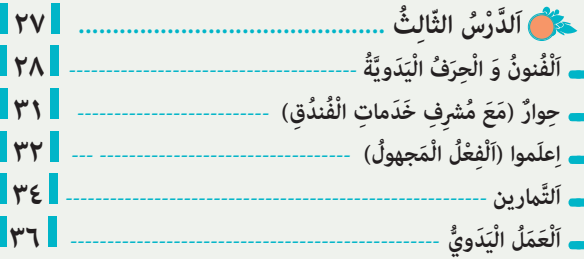 اَلدَّرْسُ الثّالِثُ ............................................. ٢٧
اَلْفُنونُ وَ الْحِرَفُ الْيَدَويَّةُ ---------------------------------------- ٢٨
حِوارٌ (مَعَ مُشرِفِ خَدَماتِ الْفُندُقِ) --------------------------- ٣١
اِعلَموا (اَلْفِعْلُ الْمَجهولُ) ----------------------------------- --- ٣٢
اَلتَّمارين ----------------------------------------------------------- ٣٤
اَلْعَمَلُ الْيَدَويُّ ---------------------------------------------------- ٣٦